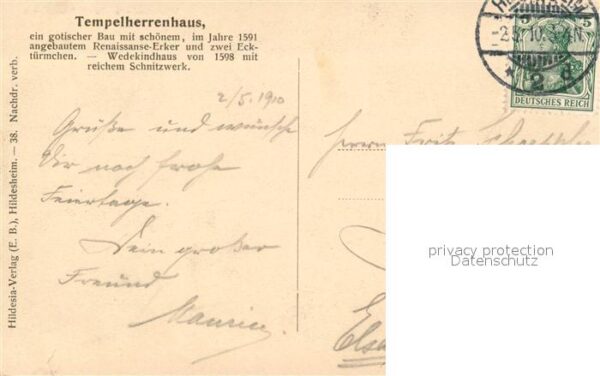 Tempelherrenhaus,
ein gotischer Bau mit schönem, im Jahre 1591
angebautem Renaissanse-Erker und zwei Eck-
türmchen. — Wedekindhaus von 1598 mit
reichem Schnitzwerk.
Hildesia-Verlag (E. B.), Hildesheim. — 38. Nachdr. verb.
2/5. 1910
Grüße und wünsche
Dir noch frohe
Feiertage.
Dein großer
Freund
Herrn Fritz
DEUTSCHES REICH
5 5
2 d
privacy protection
Datenschutz